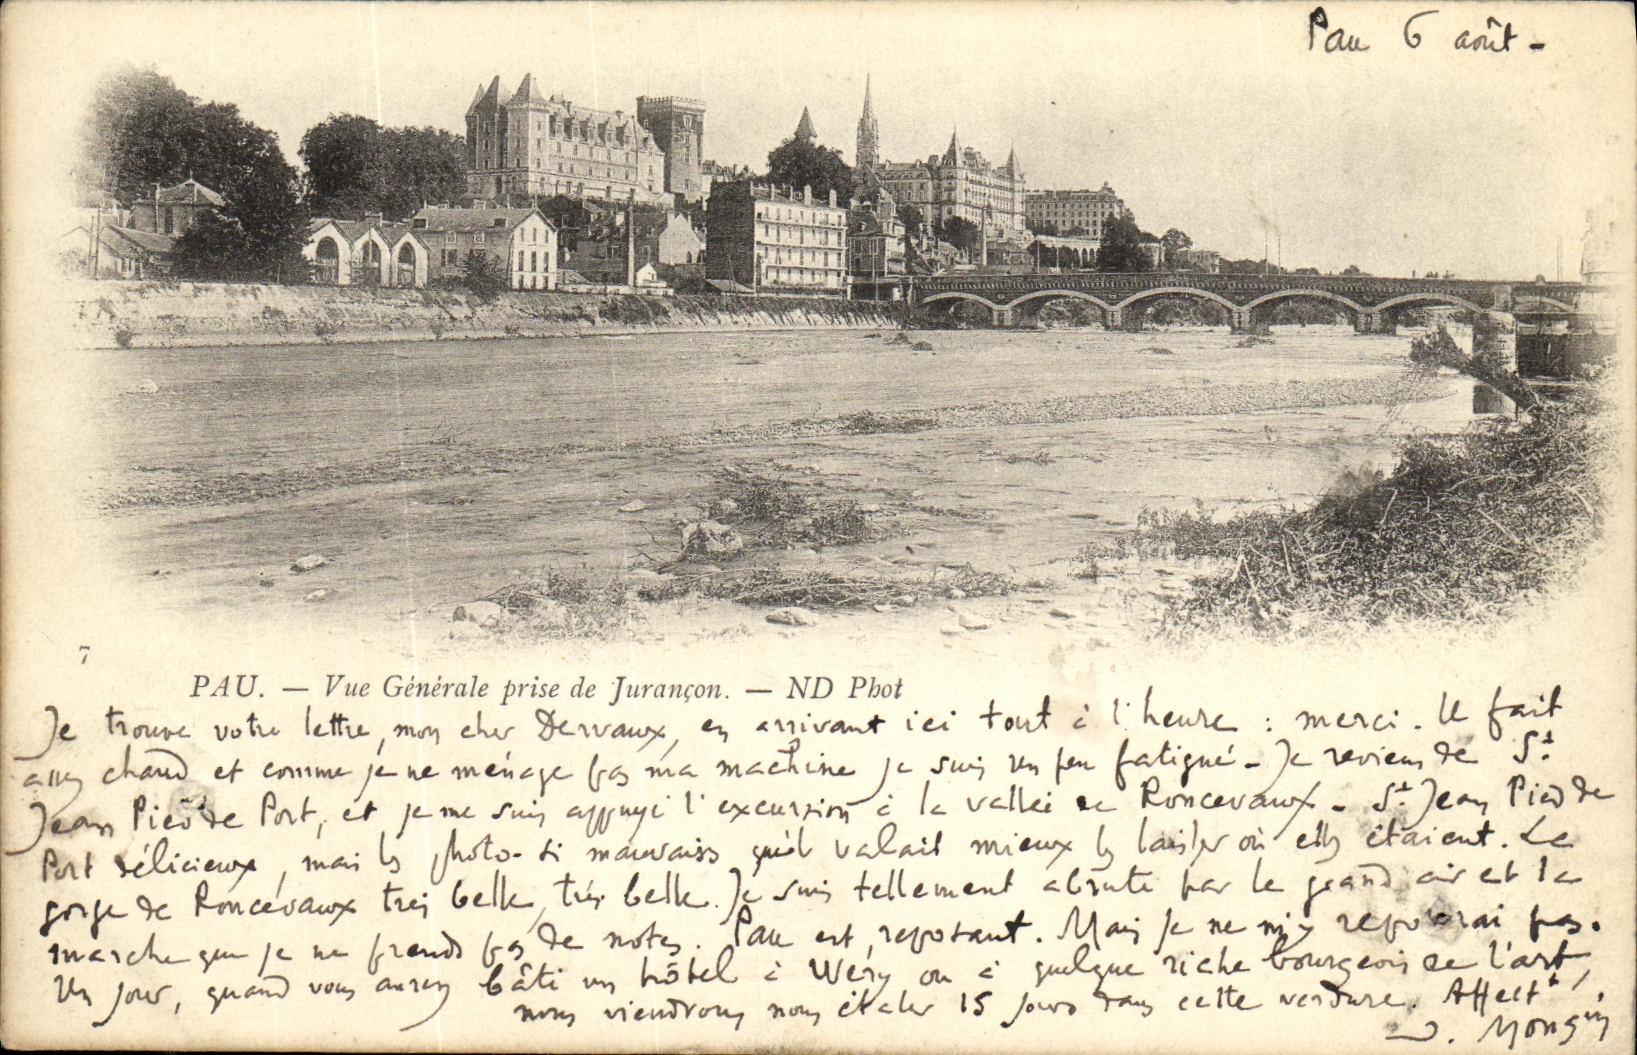 Pau 6 août -
7
PAU. — Vue Générale prise de Jurançon. — ND Phot
Je trouve votre lettre, mon cher Dervaux, en arrivant ici tout à l'heure : merci. Il fait
assez chaud et comme je ne ménage pas ma machine je suis un peu fatigué - Je reviens de St.
Jean Pied de Port, et je me suis appuyé l'excursion à la vallée de Roncevaux - St. Jean Pied de
Port délicieux, mais les photo- si mauvaises qu'il valait mieux les laisser où elles étaient. La
gorge de Roncevaux très belle, très belle. Je suis tellement abruti par le grand air et la
marche que je ne prends pas de notes. Pau est reposant. Mais je ne m'y reposerai pas.
Un jour, quand vous aurez bâti un hôtel à Wéry ou à quelque riche bourgeois de l'art,
nous viendrons nous étaler 15 jours dans cette verdure. Affectt.
. Mongin